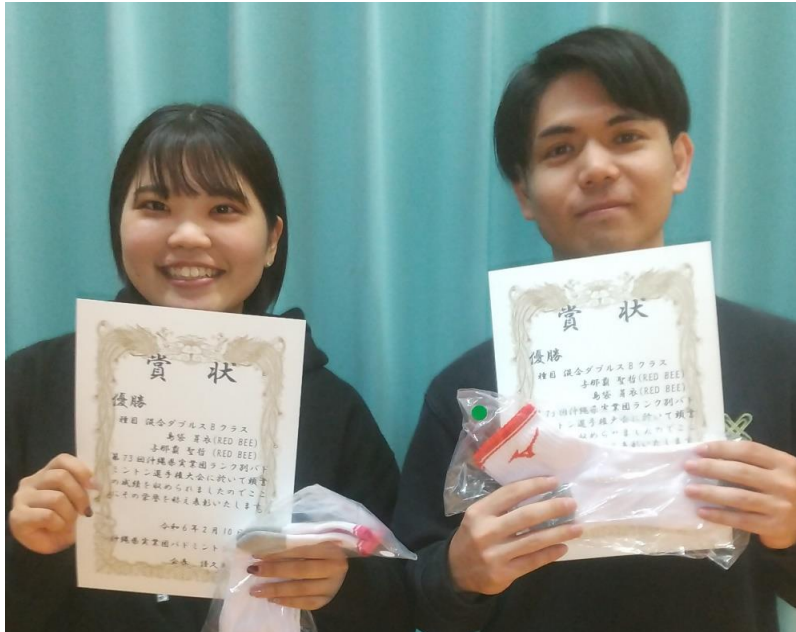 賞状
優勝
種目 混合ダブルスBクラス
島袋 (RED BEE)
与那覇 聖哲(RED BEE)
第73回沖縄県実業団ランク別バド
ミントン選手権大会に於いて頭書
の成績を収められましたのでここ
にその栄誉を称え表彰いたします
令和6年2月10
沖縄県実業団バドミント
会長
賞状
優勝
種目 混合ダブルスBクラス
与那覇 聖哲(RED BEE)
島袋 (RED BEE)
73回沖縄県実業団ランク別バド
ントン選手権大会に於いて頭書
められましたのでここ
え表彰いたします